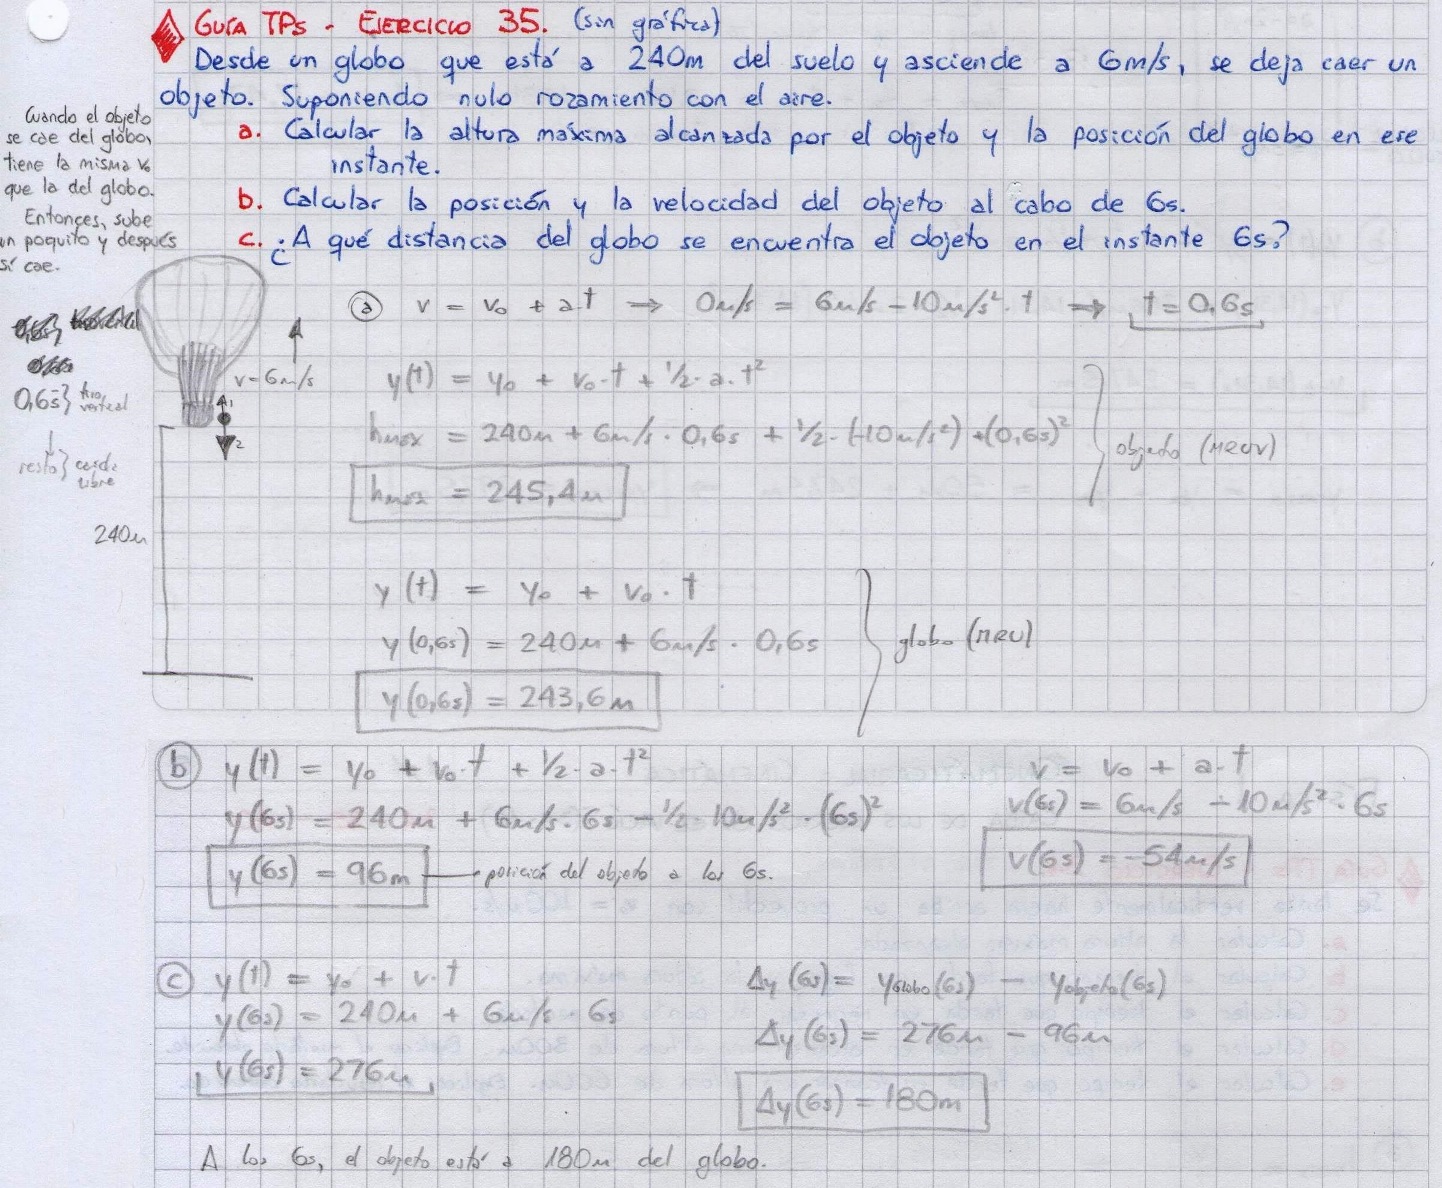 GUÍA TPs - EJERCICIO 35. (sin gráfica)
Desde un globo que está a 240m del suelo y asciende a 6m/s, se deja caer un
objeto. Suponiendo nulo rozamiento con el aire.
a. Calcular la altura máxima alcanzada por el objeto y la posición del globo en ese
instante.
b. Calcular la posición y la velocidad del objeto al cabo de 6s.
c. ¿A qué distancia del globo se encuentra el objeto en el instante 6s?
Cuando el objeto
se cae del globo,
tiene la misma v₀
que la del globo.
Entonces, sube
un poquito y después
sí cae.
v=6m/s
1
2
0,6s} tiro vertical
resto} caída libre
240m
a) v = v₀ + a.t → 0m/s = 6m/s - 10m/s² . t ⇒ t = 0,6s
y(t) = y₀ + v₀.t + 1/2.a.t²
hmax = 240m + 6m/s . 0,6s + 1/2.(-10m/s²).(0,6s)²
objeto (MRUV)
hmax = 245,4m
y(t) = y₀ + v₀ . t
y(0,6s) = 240m + 6m/s . 0,6s
globo (MRU)
y(0,6s) = 243,6m
b) y(t) = y₀ + v₀.t + 1/2.a.t²
y(6s) = 240m + 6m/s . 6s - 1/2 . 10m/s² . (6s)²
y(6s) = 96m — posición del objeto a los 6s.
v = v₀ + a.t
v(6s) = 6m/s - 10m/s² . 6s
v(6s) = -54m/s
c) y(t) = y₀ + v.t
y(6s) = 240m + 6m/s . 6s
y(6s) = 276m
Δy(6s) = yGlobo(6s) - yobjeto(6s)
Δy(6s) = 276m - 96m
Δy(6s) = 180m
A los 6s, el objeto está a 180m del globo.